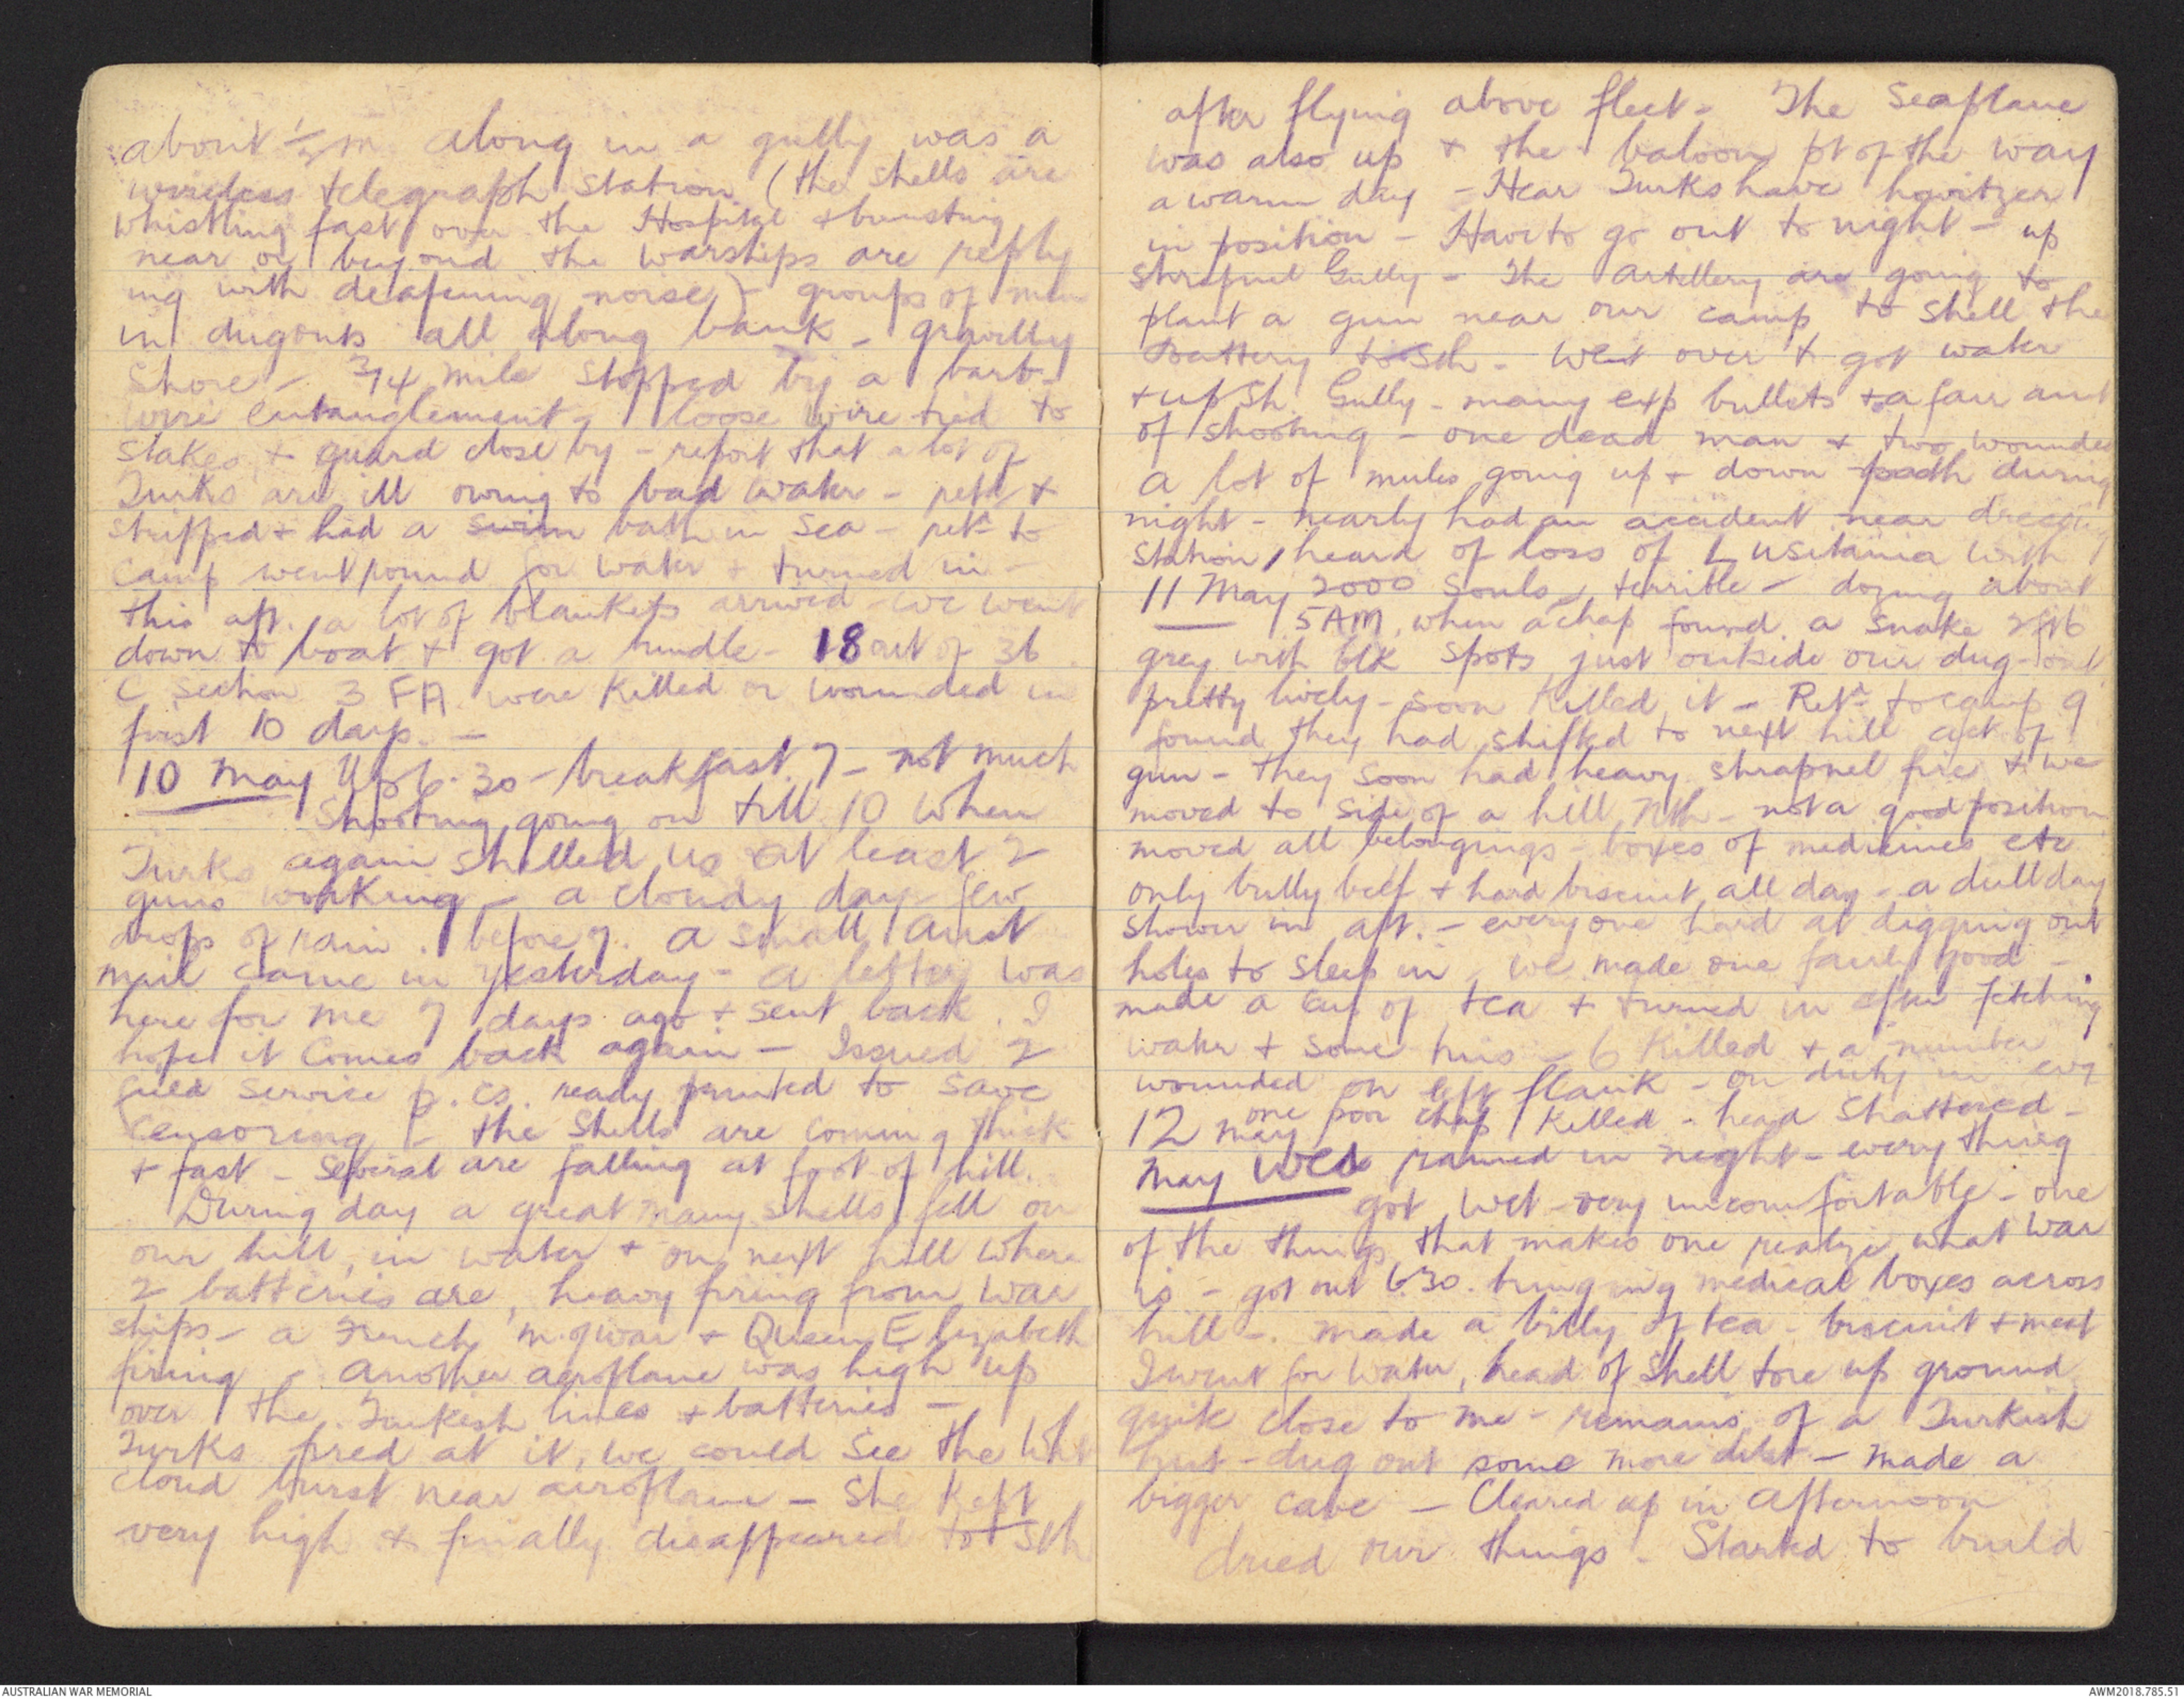 about ½ m along in a gully was a
wireless telegraph station (the shells are
whistling fast over the Hospital & bursting
near or beyond the warships are reply
ing with deafening noise) - groups of men
in dugouts all along bank - gravelly
shore - 3/4 mile stopped by a barb-
wire entanglement - loose wire tied to
stakes & guard close by - report that a lot of
Turks are ill owing to bad water - retd &
stripped & had a swim bath in sea - retd to
camp went round for water & turned in -
this aft. a lot of blankets arrived - we went
down to boat & got a bundle - 18 out of 36
C Section 3 FA were killed or wounded in
first 10 days. -
10 May Up 6.30 - breakfast 7 - not much
shooting going on till 10 when
Turks again shelled us at least 2
guns working - a cloudy day few
drops of rain. before 7. A small Aust
mail came in yesterday - a letter was
here for me 7 days ago & sent back. I
hope it comes back again - Issued 2
field service p.cs. ready printed to save
censoring - the shells are coming thick
& fast - several are falling at foot of hill.
During day a great many shells fell on
our hill, in water & on next hill where
2 batteries are, heavy firing from war
ships - a French m.ofwar & Queen Elizabeth
firing - another aeroplane was high up
over the Turkish lines & batteries -
Turks fired at it, we could see the wht
cloud burst near aeroplane - She kept
very high & finally disappeared to Sth
after flying above fleet - The Seaplane
was also up & the baloon pt of the way
a warm day - Hear Turks have howitzer
in position - Have to go out to night - up
Shrapnel Gully - The Artillery are going to
plant a gun near our camp to shell the
battery to Sth - Went over & got water
& up Sh. Gully - many exp bullets & a fair amt
of shooting - one dead man & two wounded
a lot of mules going up & down path during
night - nearly had an accident near dressing
station, heard of loss of Lusitania with
11 May 2000 souls - terrible - dozing about
5AM, when a chap found a snake 2ft6
grey with blk spots just outside our dug-out
pretty lively - soon killed it - Retd to camp 9
found they had shifted to next hill act of
gun - they soon had heavy shrapnel fire & we
moved to side of a hill Nth - not a good position
moved all belongings - boxes of medicines etc
only bully beef & hard biscuit all day - a dull day
shower in aft. - everyone hard at digging out
holes to sleep in, we made one fairly good -
made a cup of tea & turned in after fetching
water & some tins - 6 killed & a number
wounded on left flank - on duty in evg
12 May one poor chap killed - head shattered -
May Wed rained in night - every thing
got wet - very uncomfortable - one
of the things that makes one realize what war
is - got out 6.30. bringing medical boxes across
hill -. made a billy of tea - biscuit & meat
I went for water, head of shell tore up ground
quite close to me - remains of a Turkish
hut - dug out some more dirt - made a
bigger cave - Cleared up in afternoon
dried our things. Started to build
AUSTRALIAN WAR MEMORIAL
AWM2018.785.51